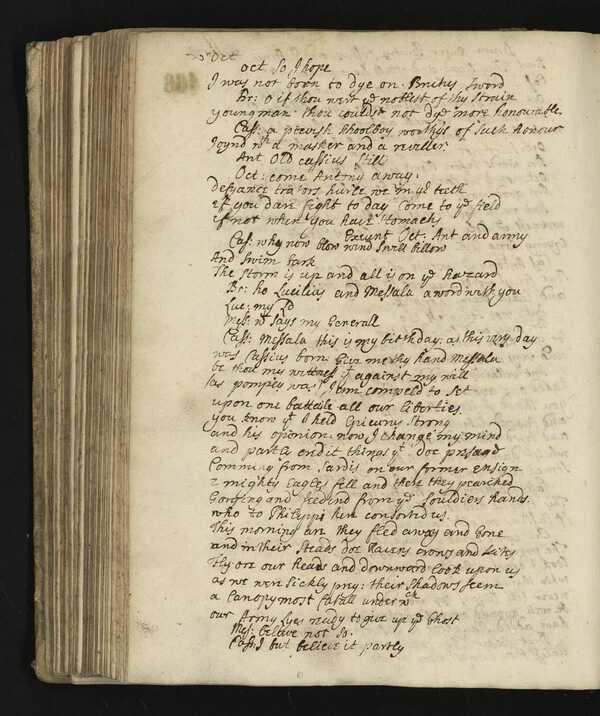 Oct
oct So I hope
I was not born to dye on Brutus Sword
Br: o if thou wert ye noblest of thy Strain
young man thou couldst not dye more honourable
Cass: a peevish schoolboy worthles of such honour
Joynd wth a masker and a reveller
Ant Old cassius still
Oct: come Antony away.
defiance traitors hurle we in yr teeth
if you dare fight to day come to ye feild
if not when you have stomachs
Exeunt Oct. Ant and army
Cass: why now blow wind swell billow
And swim bark
The storm is up and all is on ye hazard
Br: ho Lucilius and Messala a word with you
Luc: my Ld
Mess: wt says my Generall
Cass: Messala this is my birthday: as this very day
was Cassius born. Give me thy hand Messala
be thou my witness yt against my will
as pompey was I am compeld to set
upon one battaile all our liberties.
you know yt I held Epicurus strong
and his opinion: now I change my mind
and partly credit things yt doe presage
Comming from Sardis on our former ensign
2 mighty Eagles fell and there they pearched
Gorging and feeding from ye souldiers hands
who to Philippi here consorted us.
This morning are they fled away and gone
and in their steads doe Ravens crows and kites
Fly ore our heads and downward look upon us
as we were sickly prey: their shadows seem
a Canopy most fatall under wch
our Army lyes ready to give up ye Ghost
Mes: beleive not so.
Cass: I but beleive it partly